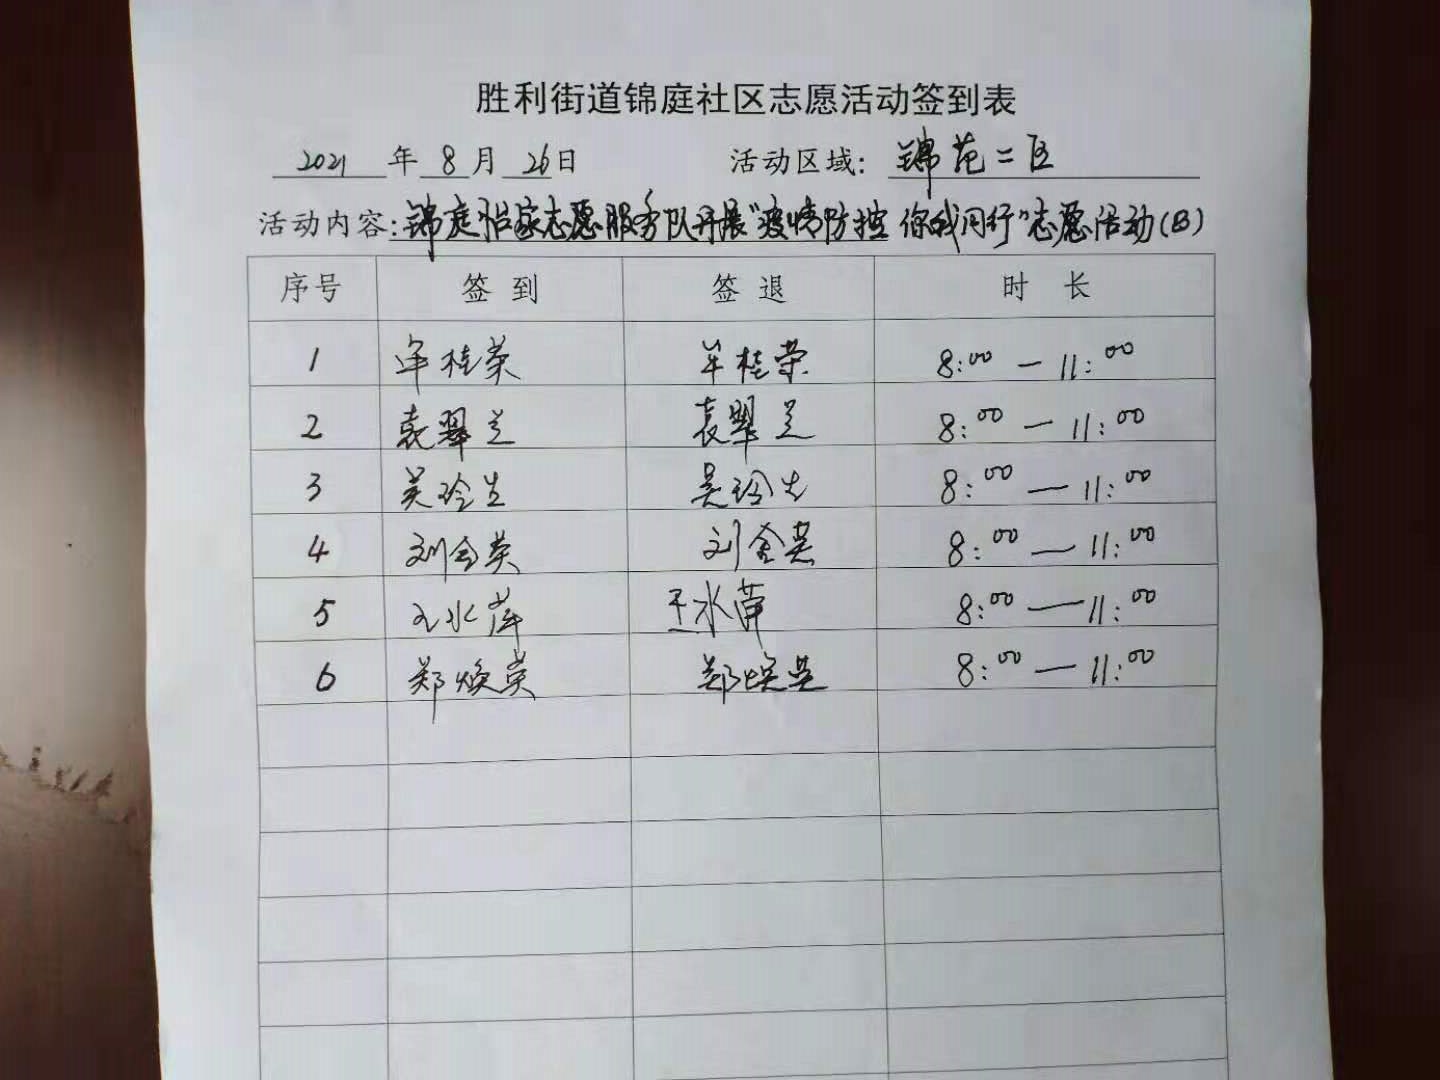 胜利街道锦庭社区志愿活动签到表
2021 年 8 月 26 日 活动区域: 锦苑二区
活动内容: 锦庭怡家志愿服务队开展"疫情防控 你我同行"志愿活动(B)
序号 签到 签退 时长
1 牟桂荣 牟桂荣 8:00 — 11:00
2 袁翠兰 袁翠兰 8:00 — 11:00
3 吴玲生 吴玲生 8:00 — 11:00
4 刘金英 刘金英 8:00 — 11:00
5 王水萍 王水萍 8:00 — 11:00
6 郑焕英 郑焕英 8:00 — 11:00